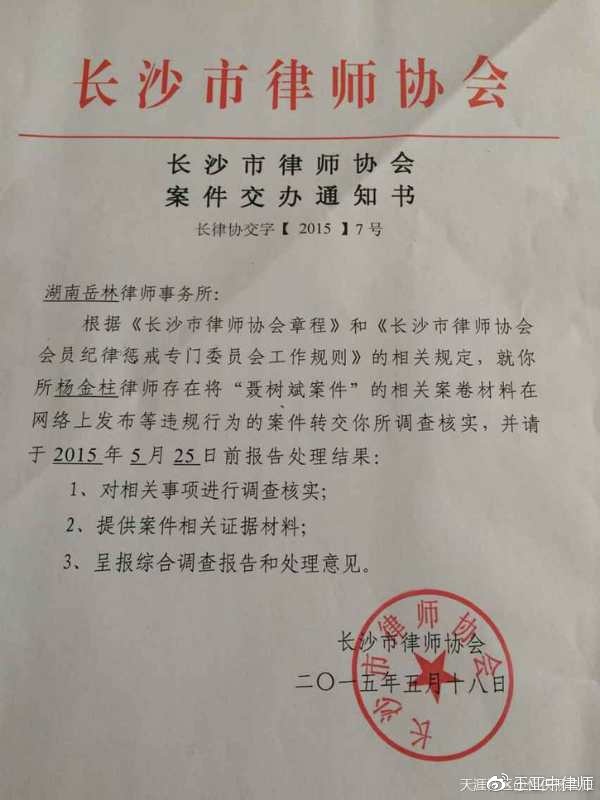 长沙市律师协会
长沙市律师协会
案件交办通知书
长律协交字【 2015 】7号
湖南岳林律师事务所:
根据《长沙市律师协会章程》和《长沙市律师协会
会员纪律惩戒专门委员会工作规则》的相关规定，就你
所杨金柱律师存在将“聂树斌案件”的相关案卷材料在
网络上发布等违规行为的案件转交你所调查核实，并请
于 2015 年 5 月 25 日前报告处理结果:
1、对相关事项进行调查核实;
2、提供案件相关证据材料;
3、呈报综合调查报告和处理意见。
长沙市律师协会
二〇一五年五月十八日
长沙市律师协会
王亚中律师